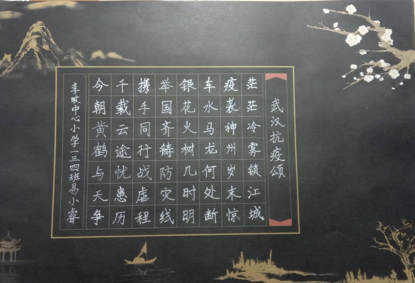 武汉抗疫颂
茫茫冷雾锁江城
疫袭神州岁末惊
车水马龙何处断
银花火树几时明
举国齐铸防灾线
携手同行战虐程
千载云途忧患历
今朝黄鹤与天争
李畋中心小学一三四班易小睿